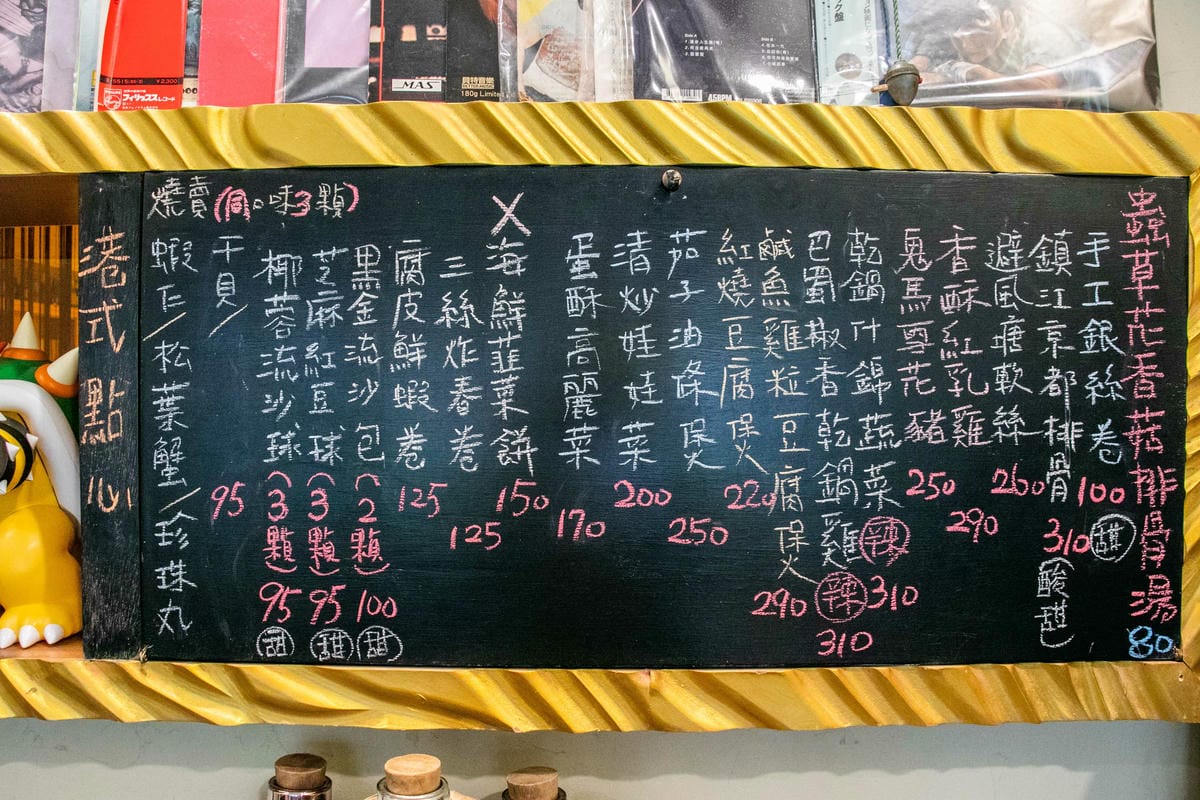 蟲草花香菇排骨湯 80
手工銀絲卷 100 甜
鎮江京都排骨 310 (酸甜)
避風塘軟絲 260
香酥紅乳雞 290
鬼馬雪花豬 250
乾鍋什錦蔬菜 辣 310
巴蜀椒香乾鍋雞 辣 310
鹹魚雞粒豆腐煲 290
紅燒豆腐煲 220
茄子油條煲 250
清炒娃娃菜 200
蛋酥高麗菜 170
X 海鮮韮菜餅 150
三絲炸春卷 125
腐皮鮮蝦卷 125
黑金流沙包 (2顆) 100 甜
芝麻紅豆球 (3顆) 95 甜
椰蓉流沙球 (3顆) 95 甜
燒賣(同口味3顆)
干貝/
蝦仁/松葉蟹/珍珠丸 95
港式點心
¥2,300
PHILIPS
フィリップスレコード
MAS
貝特音樂
180g Limited
Side A
Side B
45RPM